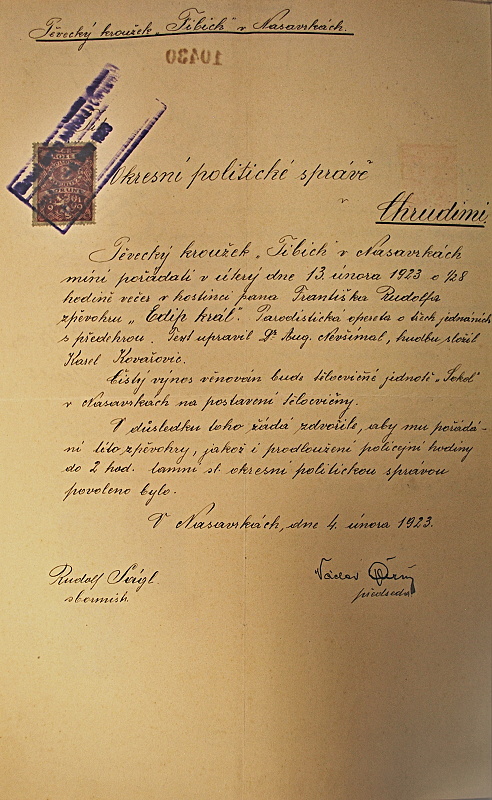 Pěvecký kroužek „Fibich" v Nasavrkách.
10430
Okresní politické správě
v
Chrudimi.
Pěvecký kroužek „Fibich" v Nasavrkách
míní pořádati v úterý dne 13. února 1923 o ½8
hodině večer v hostinci pana Františka Rudolfa
zpěvohru „Edip král". Parodistická opereta o třech jednáních
s předehrou. Text upravil Dr Aug. Nevšímal, hudbu složil
Karel Kovařovic.
Čistý výnos věnován bude tělocvičné jednotě „Sokol"
v Nasavrkách na postavení tělocvičny.
V důsledku toho žádá zdvořile, aby mu pořádá-
ní této zpěvohry, jakož i prodloužení policejní hodiny
do 2 hod. tamní sl. okresní politickou správou
povoleno bylo.
V Nasavrkách, dne 4. února 1923.
Rudolf
sbormistr.
Václav
předseda